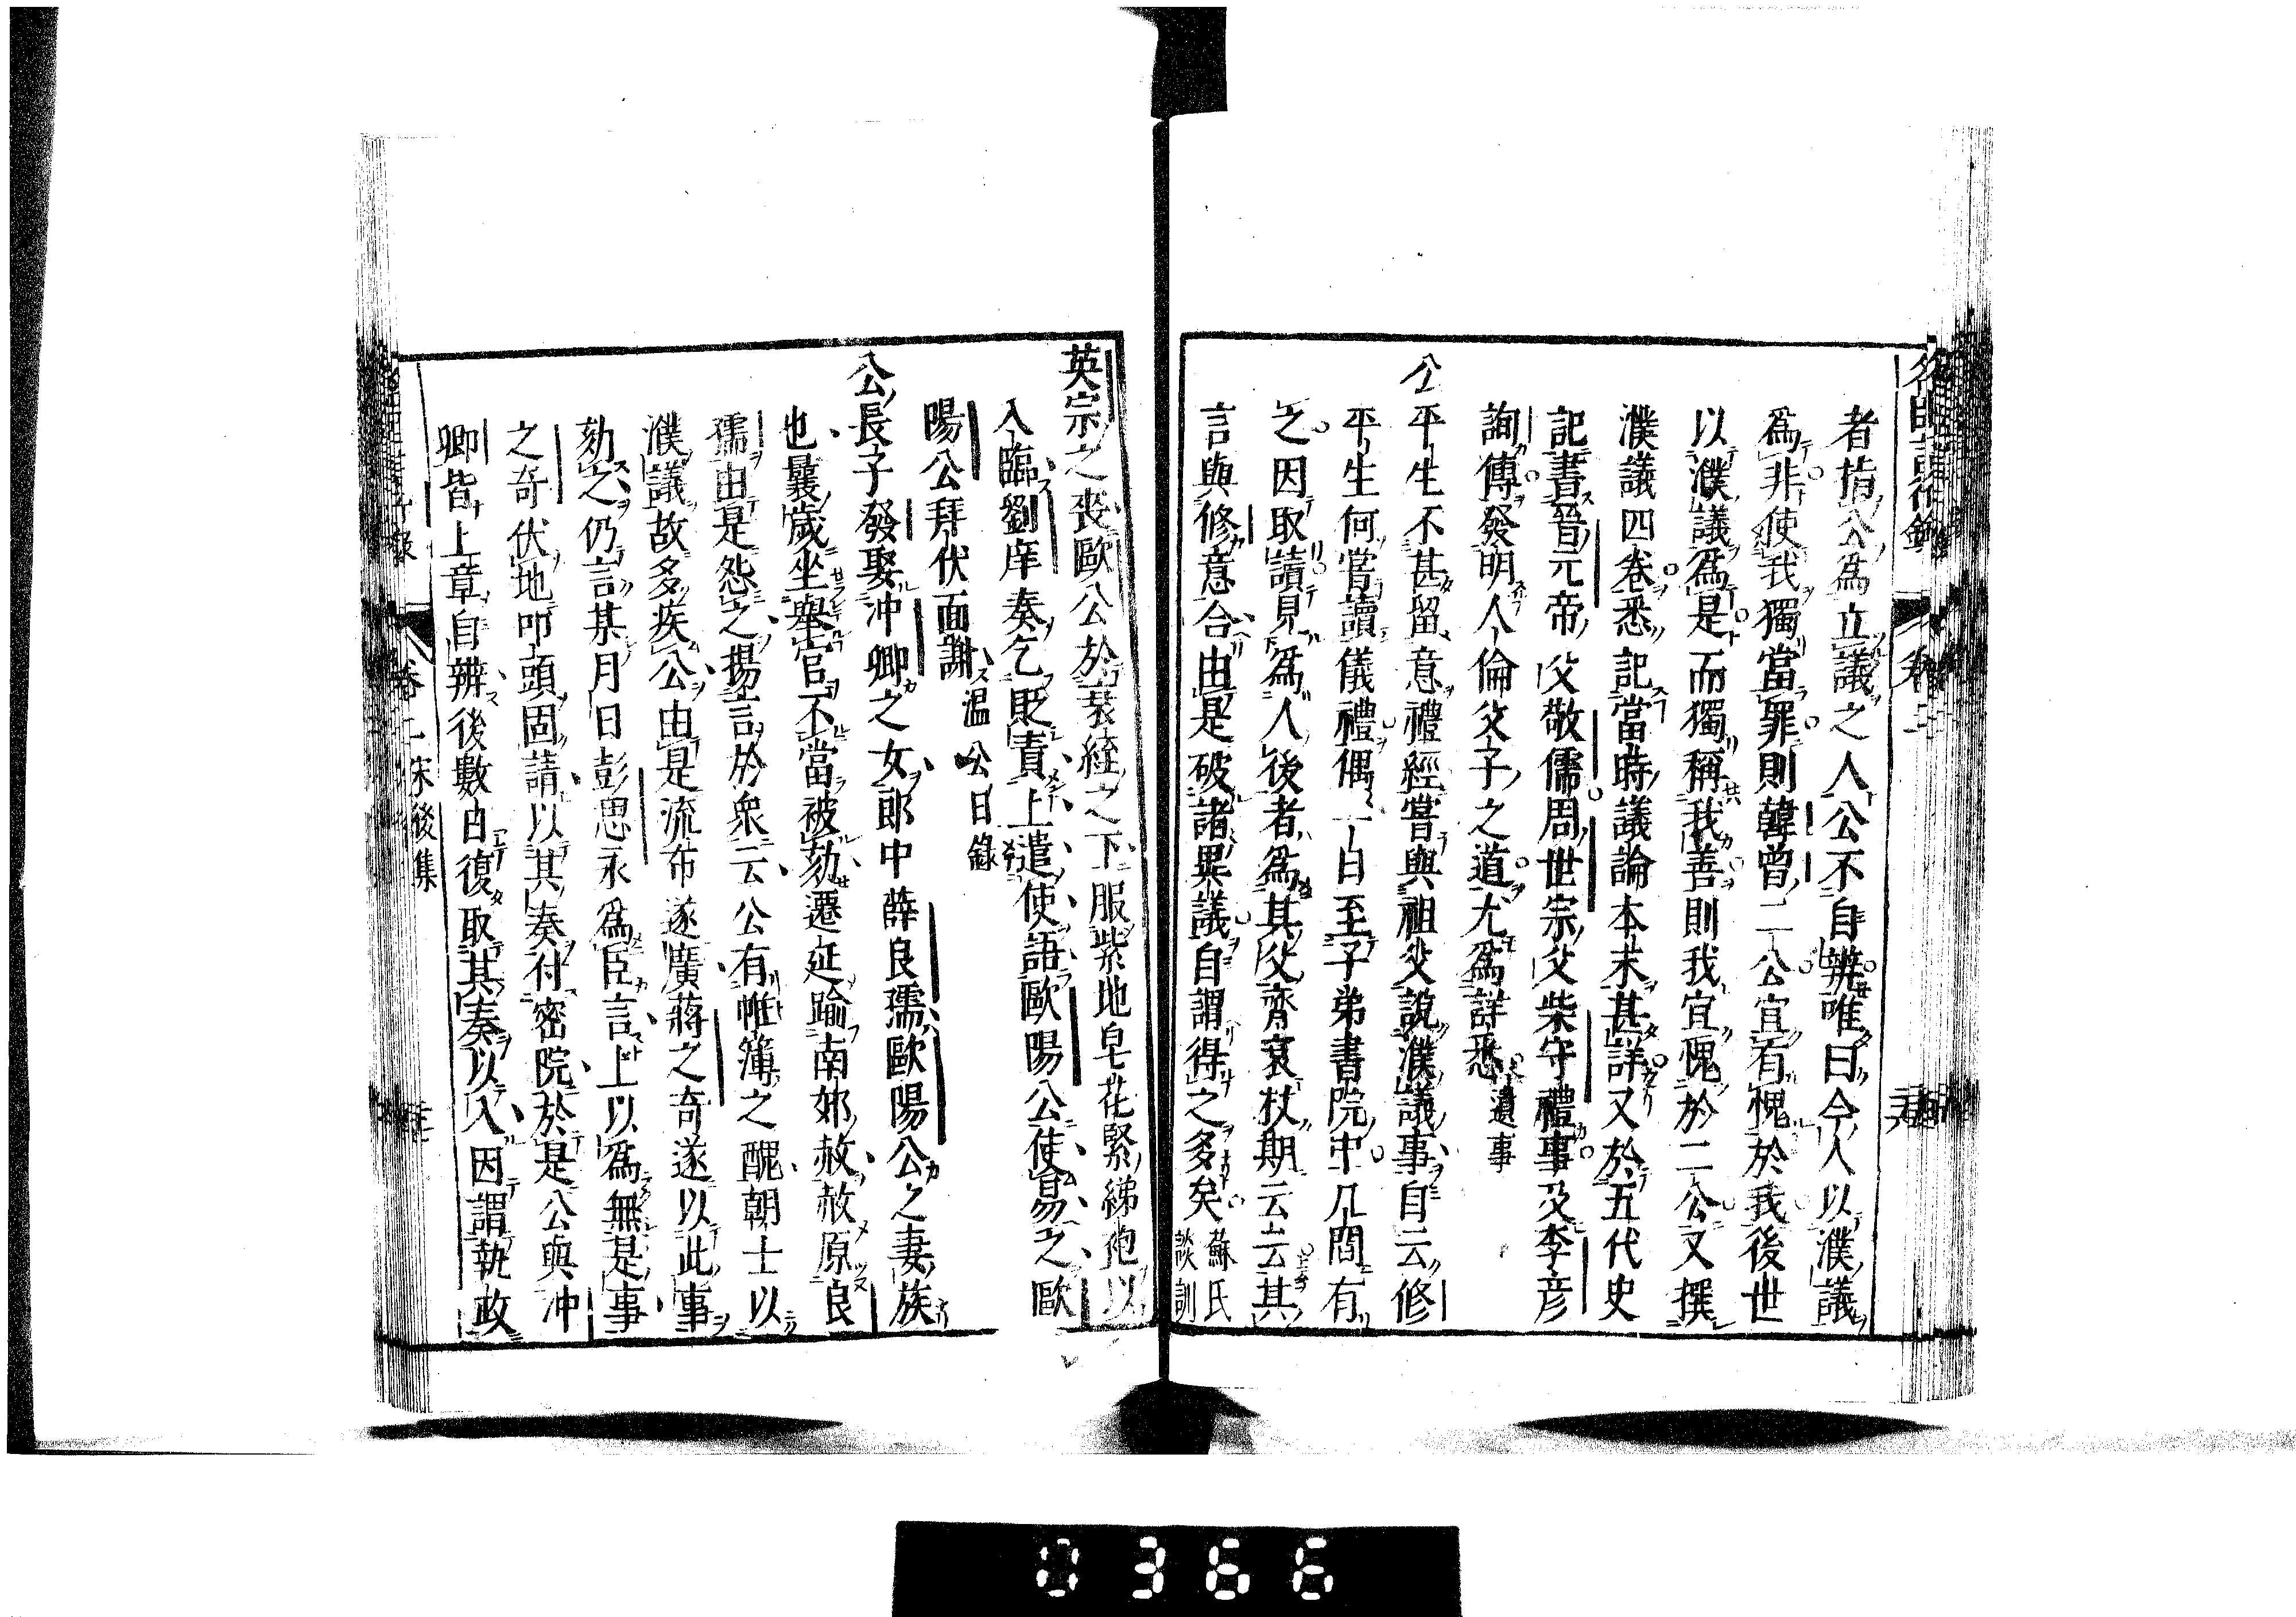 者指公為立議之人公不自辨唯曰今人以濮議
為非使我獨當罪則韓曾二公宜有愧於我後世
以濮議為是而獨稱我善則我宜愧於二公又撰
濮議四卷悉記當時議論本末甚詳又於五代史
記書晉元帝父敬儒周世宗父柴守禮事及李彥
詢傳發明人倫父子之道尤為詳悉 遺事
公平生不甚留意禮經嘗與祖父說濮議事自云修
平生何嘗讀儀禮偶一日至子弟書院中几間有
之因取讀見為人後者為其父齊衰杖期云云其
言與修意合由是破諸異議自謂得之多矣 蘇氏談訓
英宗之喪歐公於衰絰之下服紫地皂花緊綈袍以
入臨劉庠奏乞貶責上遣使語歐陽公使易之歐
陽公拜伏面謝 溫公日錄
公長子發娶沖卿之女郎中薛良孺歐陽公之妻族
也曩歲坐舉官不當被劾遷延踰南郊赦赦原良
孺由是怨之揚言於眾云公有帷簿之醜朝士以
濮議故多疾公由是流布遂廣蔣之奇遂以此事
劾之仍言某月日彭思永為臣言上以為無是事
之奇伏地叩頭固請以其奏付密院於是公與沖
卿皆上章自辨後數日復取其奏以入因謂執政
卷二 宋後集
0366